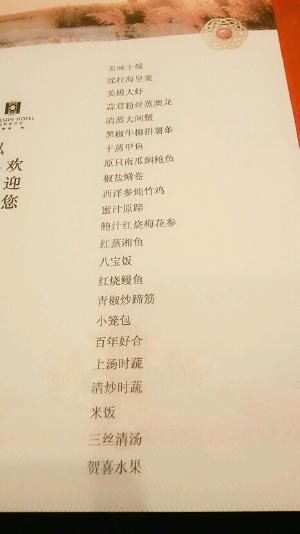 美味十碟
瑶柱海皇羹
美极大虾
蒜茸粉丝蒸澳龙
清蒸大闸蟹
黑椒牛柳拼薯条
干蒸甲鱼
原只南瓜焖鲍鱼
椒盐鳞卷
西洋参炖竹鸡
蜜汁原蹄
鲍汁红烧梅花参
红蒸湘鱼
八宝饭
红烧鳗鱼
青椒炒蹄筋
小笼包
百年好合
上汤时蔬
清炒时蔬
米饭
三丝清汤
贺喜水果
SUN HOTEL
欢
迎
您